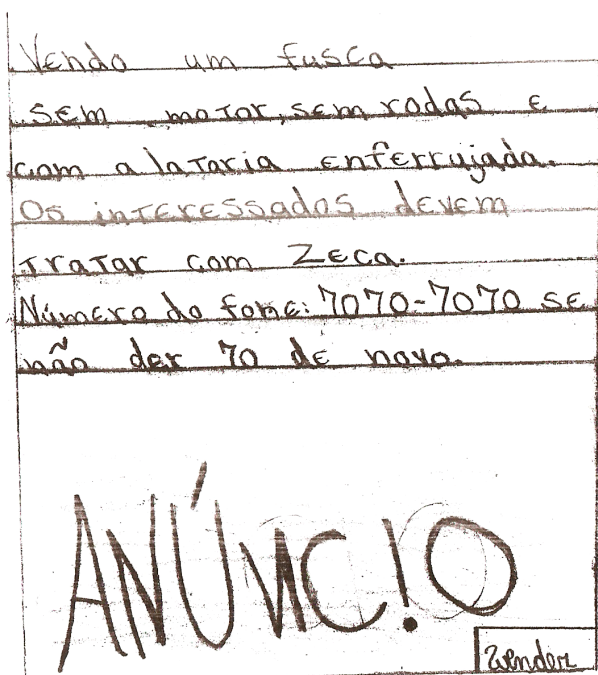 Vendo um fusca
sem motor, sem rodas e
com a lataria enferrujada.
Os interessados devem
tratar com Zeca.
Número do fone: 7070-7070 se
não der 70 de novo.
ANÚNC!O
Wender